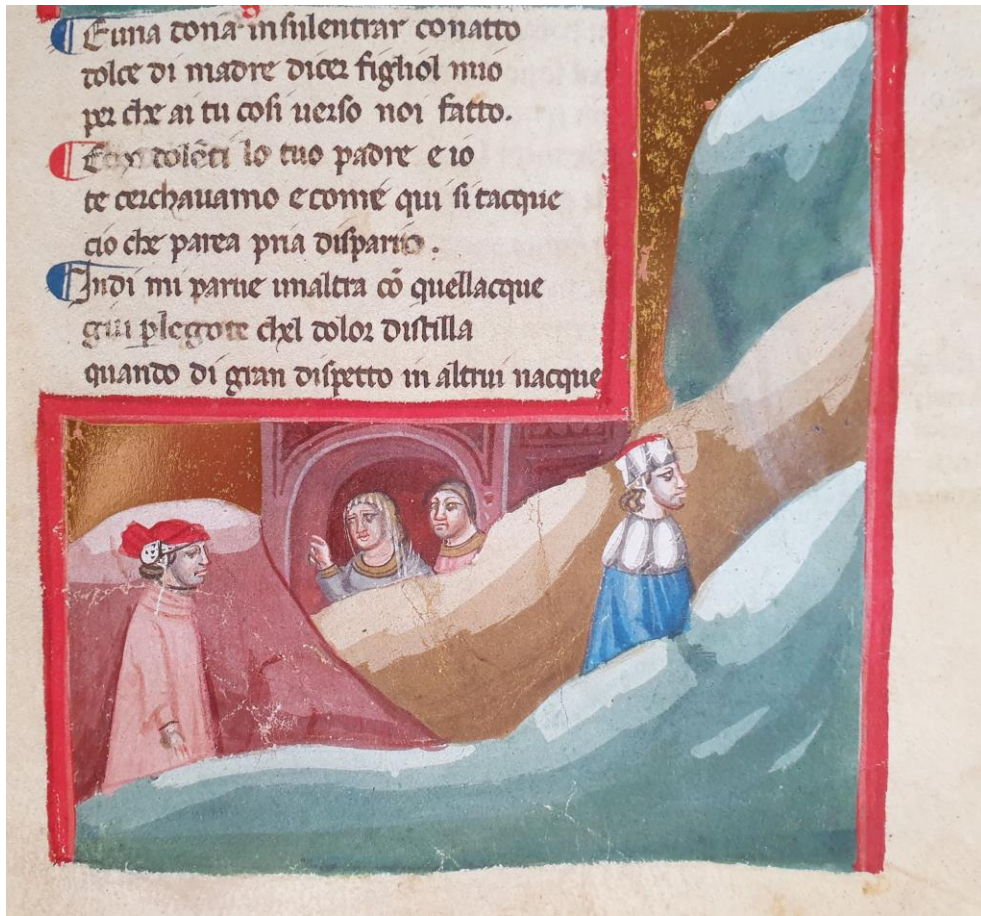 Euna dona insulentrar conatto
dolce di madre dicer figliol mio
per che ai tu cosi uerso noi fatto.
dolẽti lo tuo padre e io
te cerchauamo e come qui si tacque
cio che parea pria dispario.
Indi mi parue unaltra cõ quellacque
giu plegote chel dolor distilla
quando di gran dispetto in altrui nacque